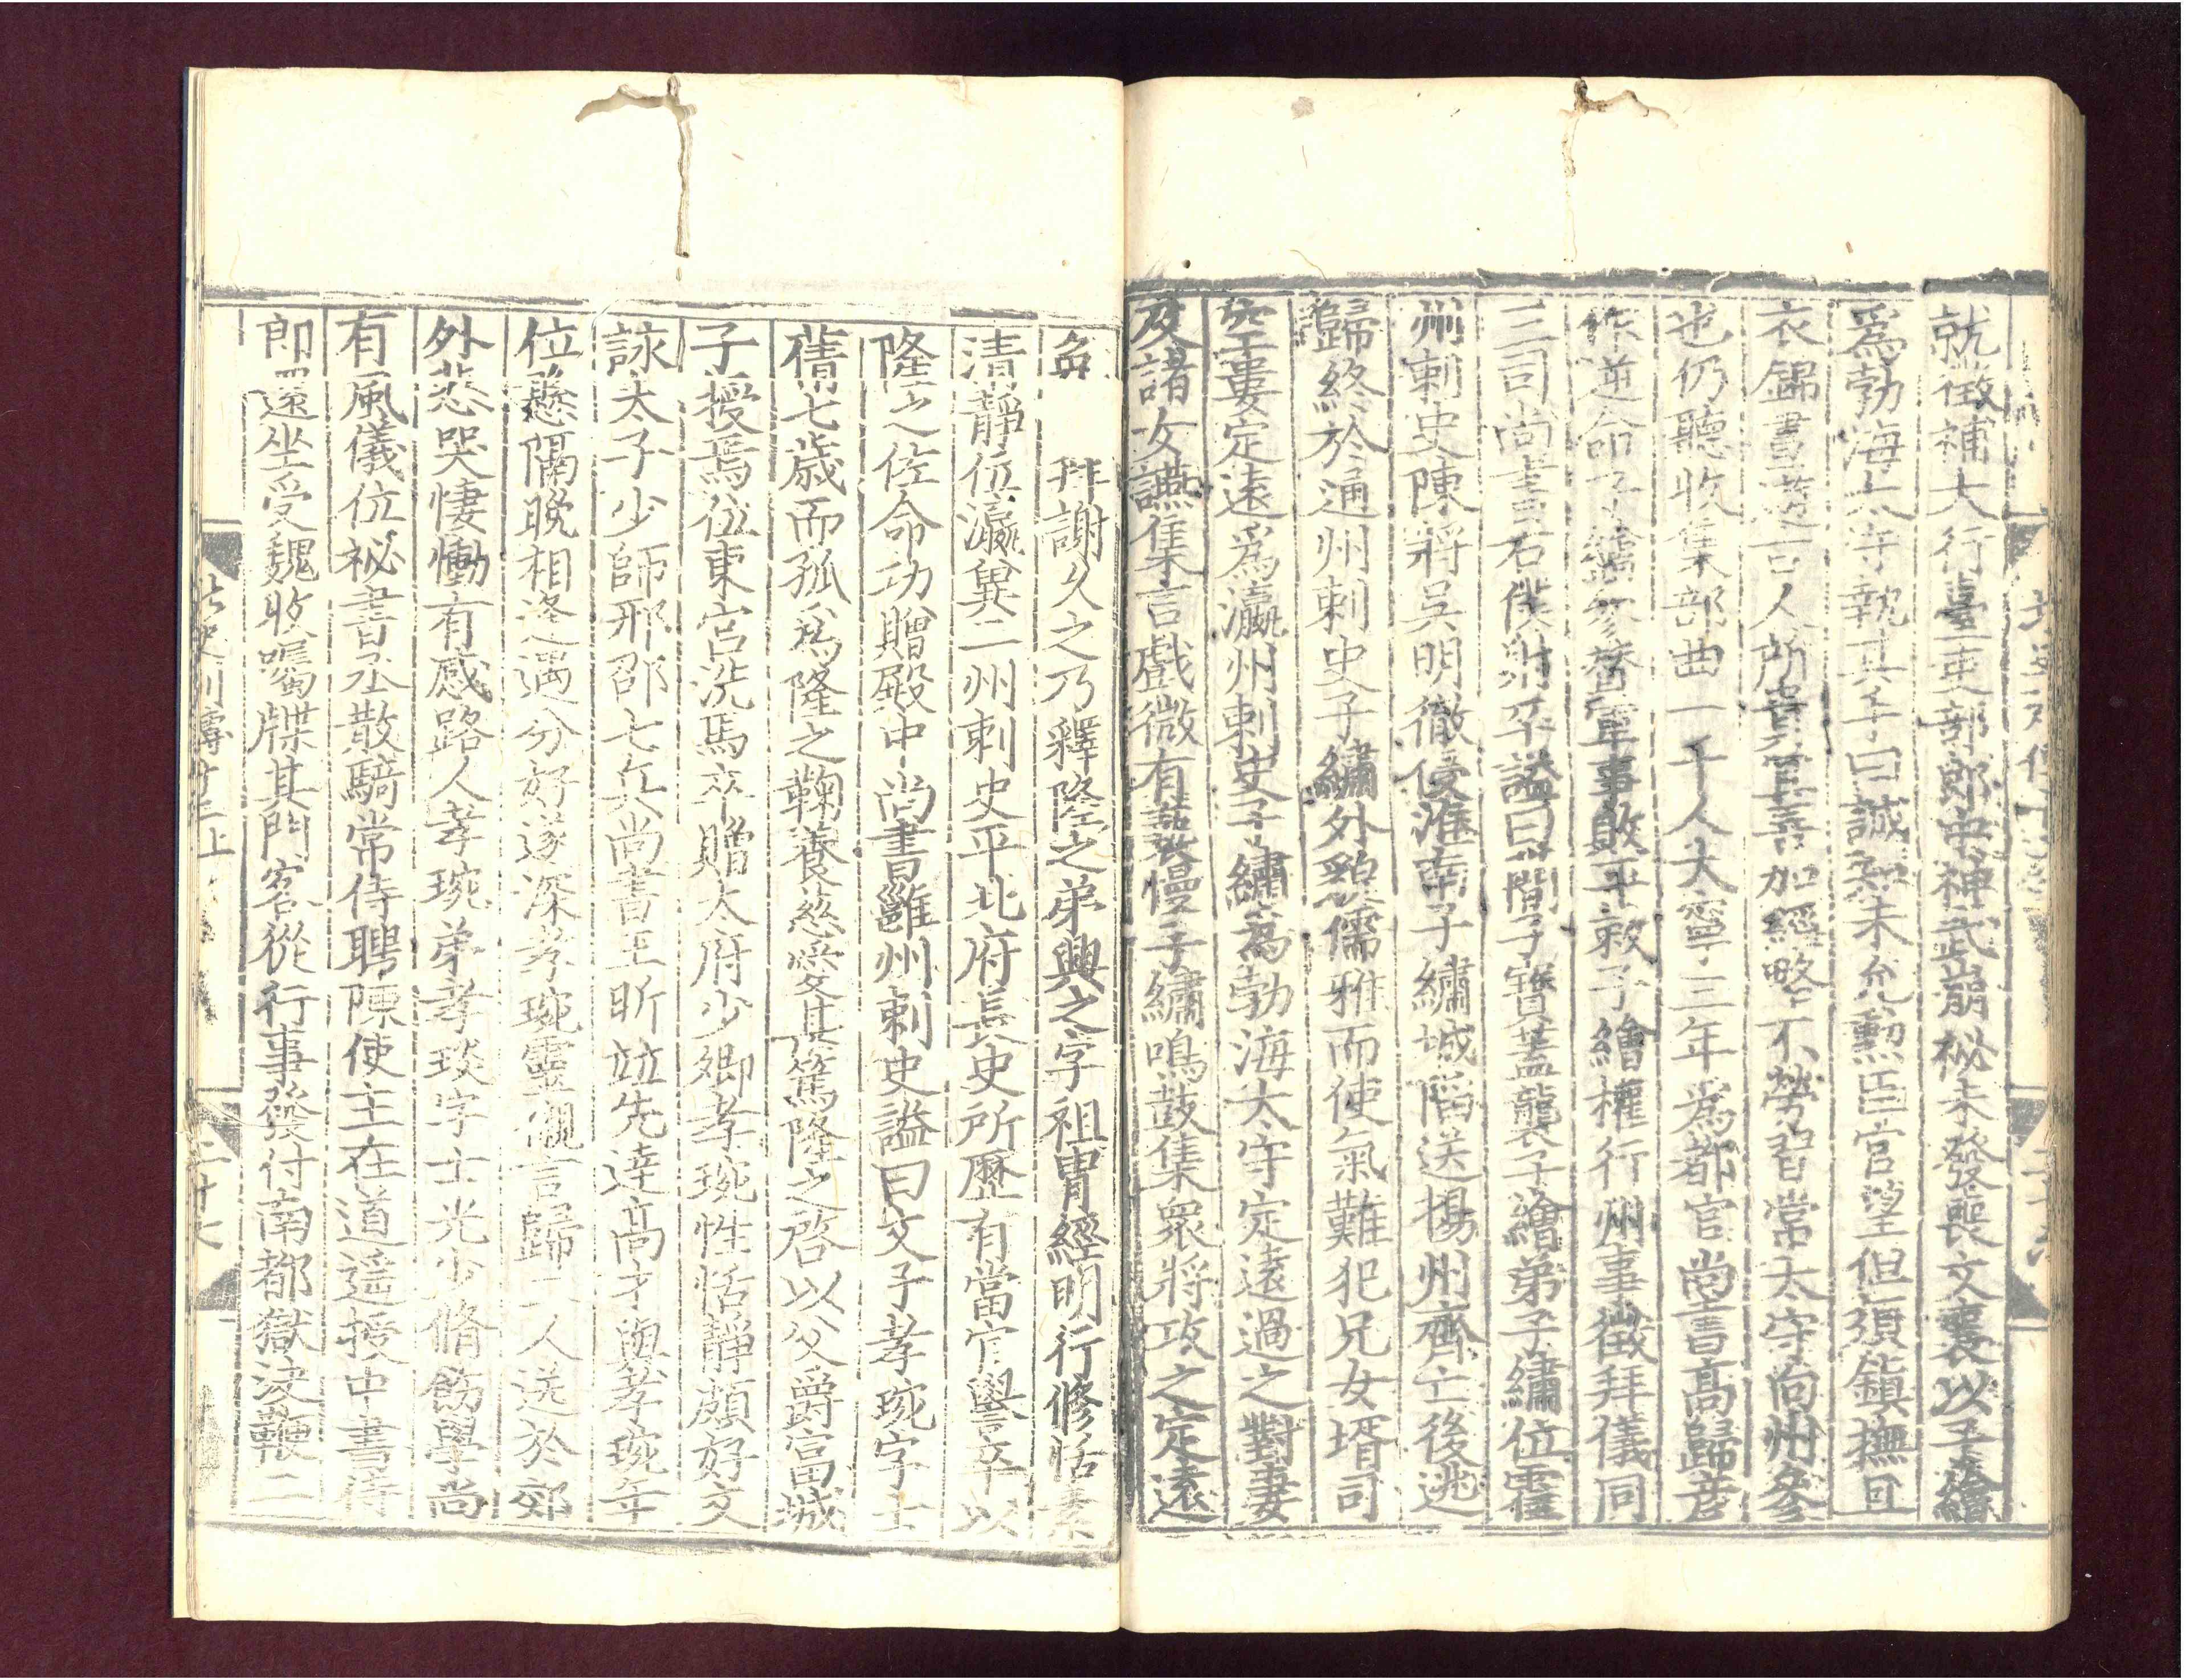 就徵補大行臺吏部郎中神武崩祕未發喪文襄以子繪
爲勃海太守執其手曰誠知未允勳臣官望但須鎮撫且
衣錦晝遊古人所貴其善加經略不勞習常太守向州參
也仍聽收集部曲一千人大寧三年爲都官尚書高歸彥
作逆命子繪參贊軍事賊平敕子繪權行州事徵拜儀同
三司尚書右僕射卒謚曰簡子寶蓋襲子繪弟子繡位霍
州刺史陳將吳明徹侵淮南子繡城陷送揚州齊亡後逃
歸終於通州刺史子繡外貌儒雅而使氣難犯兄女壻司
空婁定遠爲瀛州刺史子繡爲勃海太守定遠過之對妻
及諸女讌集言戲微有䙝慢子繡鳴鼓集衆將攻之定遠
免 拜謝久之乃釋隆之弟興之字祖胄經明行修恬素
清靜位瀛冀二州刺史平北府長史所歷有當官譽卒以
隆之佐命功贈殿中尚書雝州刺史謚曰文子孝琬字士
蒨七歲而孤爲隆之鞠養慈愛甚篤隆之啓以父爵富城
子授焉位東宮洗馬卒贈太府少卿孝琬性恬靜頗好文
詠太子少師邢邵七兵尚書王昕竝先達高才與孝琬年
位懸隔晚相逢遇分好遂深孝琬靈櫬言歸二人送於郊
外悲哭悽慟有感路人孝琬弟孝琰字士光少脩飭學尚
有風儀位祕書丞散騎常侍聘陳使主在道遥授中書侍
郎還坐受魏收囑牒其門客從行事發付南都獄決鞭二
北史列傳十二上
二十七